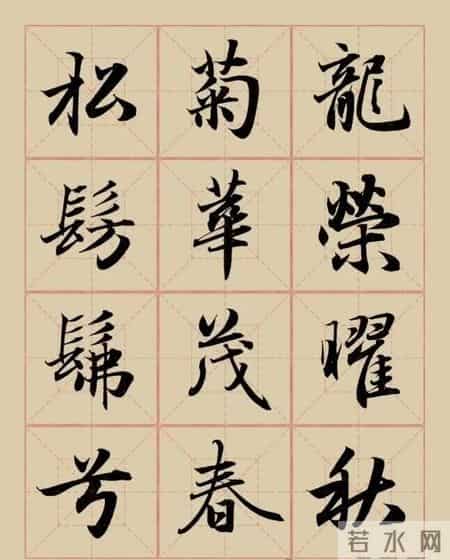 龍榮曜秋
菊華茂春
松髣髴兮
若水网